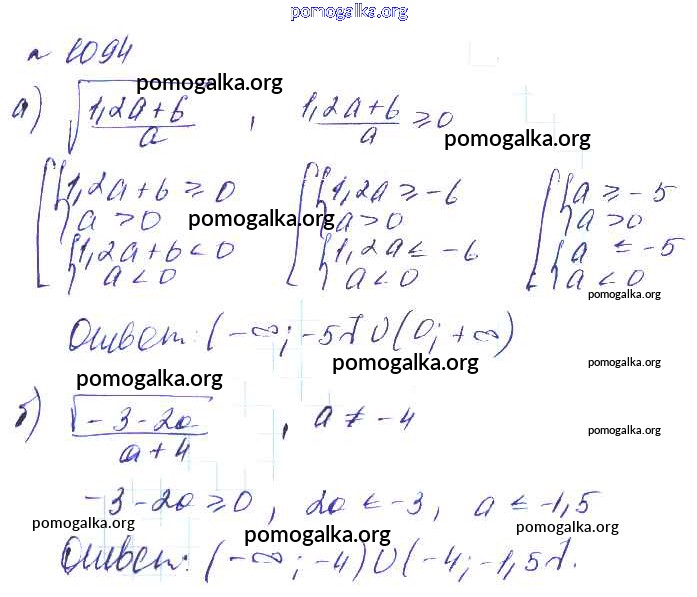 pomogalka.org
n 1094
pomogalka.org
а) √((1,2a+6)/a) , (1,2a+6)/a ≥ 0
pomogalka.org
[ { 1,2a+6 ≥ 0 [ { 1,2a ≥ -6 [ { a ≥ -5
a > 0 pomogalka.org a > 0 a > 0
{ 1,2a+6 < 0 { 1,2a ≤ -6 { a ≤ -5
a < 0 a < 0 a < 0
pomogalka.org
Ответ: (-∞; -5] ∪ (0; +∞)
pomogalka.org
pomogalka.org
б) √(-3-2a)/(a+4) , a ≠ -4
pomogalka.org
-3-2a ≥ 0, 2a ≤ -3, a ≤ -1,5
pomogalka.org pomogalka.org pomogalka.org
Ответ: (-∞; -4) ∪ (-4; -1,5].